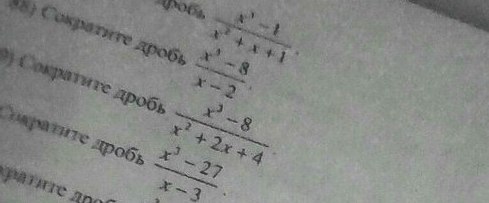 дробь x³ – 1 / x² + x + 1 .
88) Сократите дробь x³ – 8 / x – 2 .
9) Сократите дробь x³ – 8 / x² + 2x + 4 .
Сократите дробь x³ – 27 / x – 3 .
кратите дробь